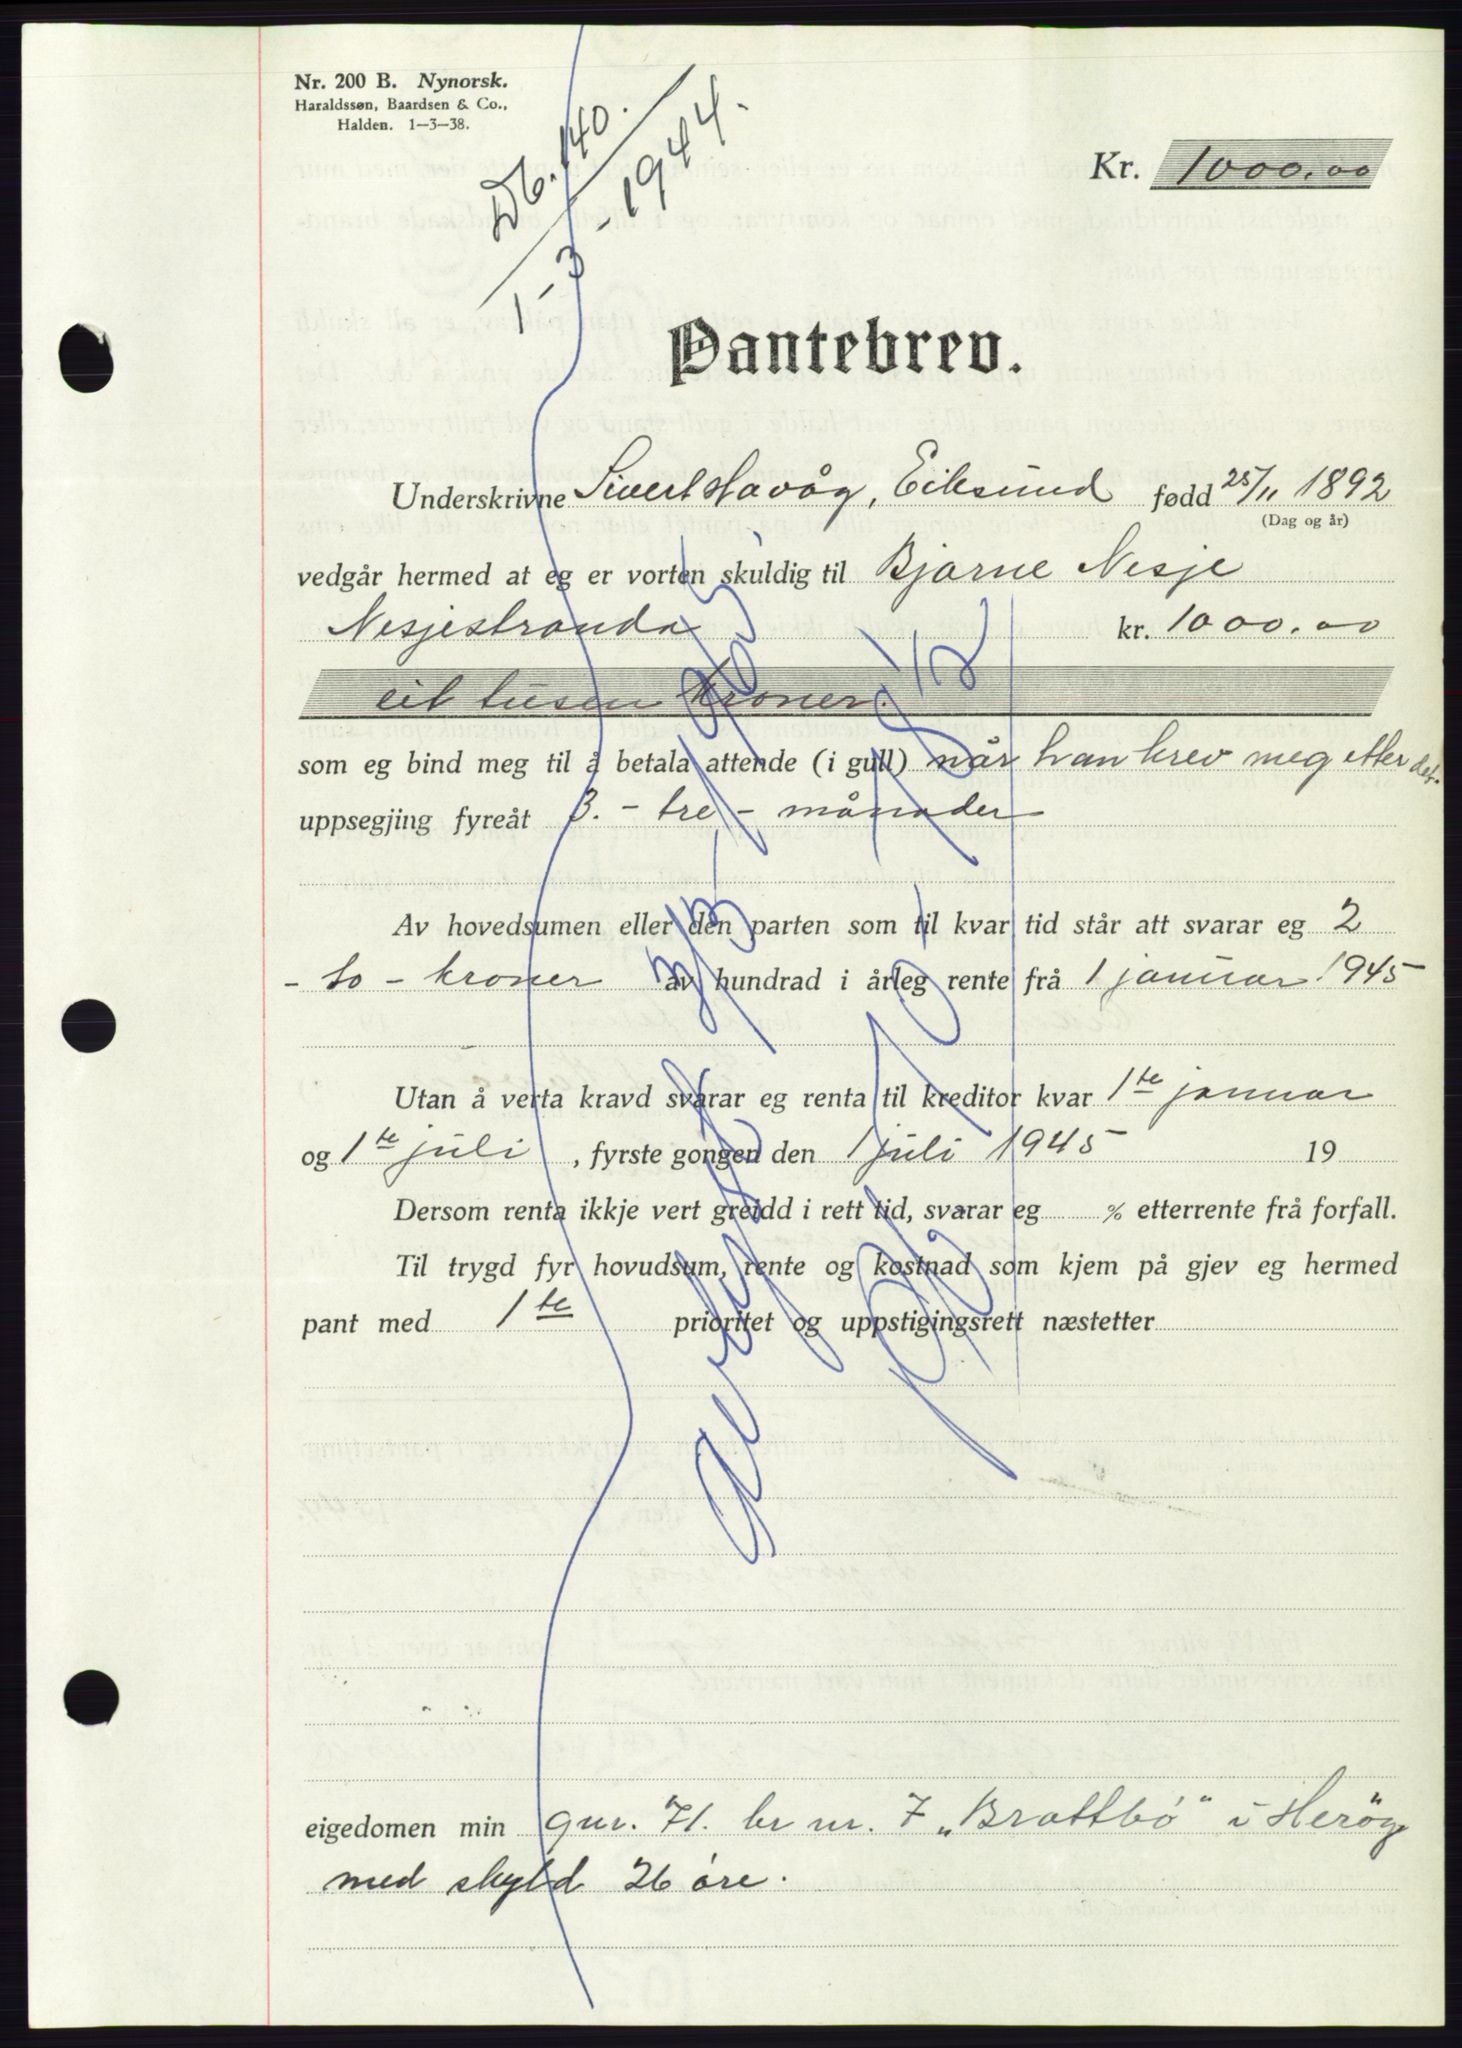 Nr. 200 B. Nynorsk.
Haraldssøn, Baardsen & Co.,
Halden. 1—3—38.
Db. 140.
1 - 3 - 1944.
Kr. 1000.00
Pantebrev.
Underskrivne Sivert Havåg, Eiksund fødd 25/11 1892
(Dag og år)
vedgår hermed at eg er vorten skuldig til Bjarne Nesje
Nesjestranda kr. 1000.00
eit tusen kroner.
som eg bind meg til å betala attende (i gull) når han krev meg etter det.
uppsegjing fyreåt 3. - tre - månader
Av hovedsumen eller den parten som til kvar tid står att svarar eg 2
- to - kroner av hundrad i årleg rente frå 1 januar 1945
Utan å verta kravd svarar eg renta til kreditor kvar 1te januar
og 1te juli , fyrste gongen den 1 juli 1945 19
Dersom renta ikkje vert greidd i rett tid, svarar eg % etterrente frå forfall.
Til trygd fyr hovudsum, rente og kostnad som kjem på gjev eg hermed
pant med 1te prioritet og uppstigingsrett næstetter
eigedomen min gnr. 71. br nr. 7 „Brattbö" i Heröy
med skyld 26 öre.
avlyst 3/3-